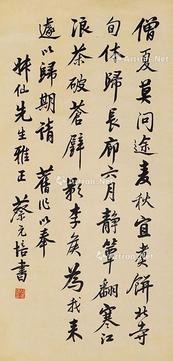 僧夏莫问途麦秋宜煮饼北寺
旬休归长廊六月静簟翻寒江
浪茶破苍璧影李侯为我来
遽以归期请 旧作以奉
仙先生雅正 蔡元培书